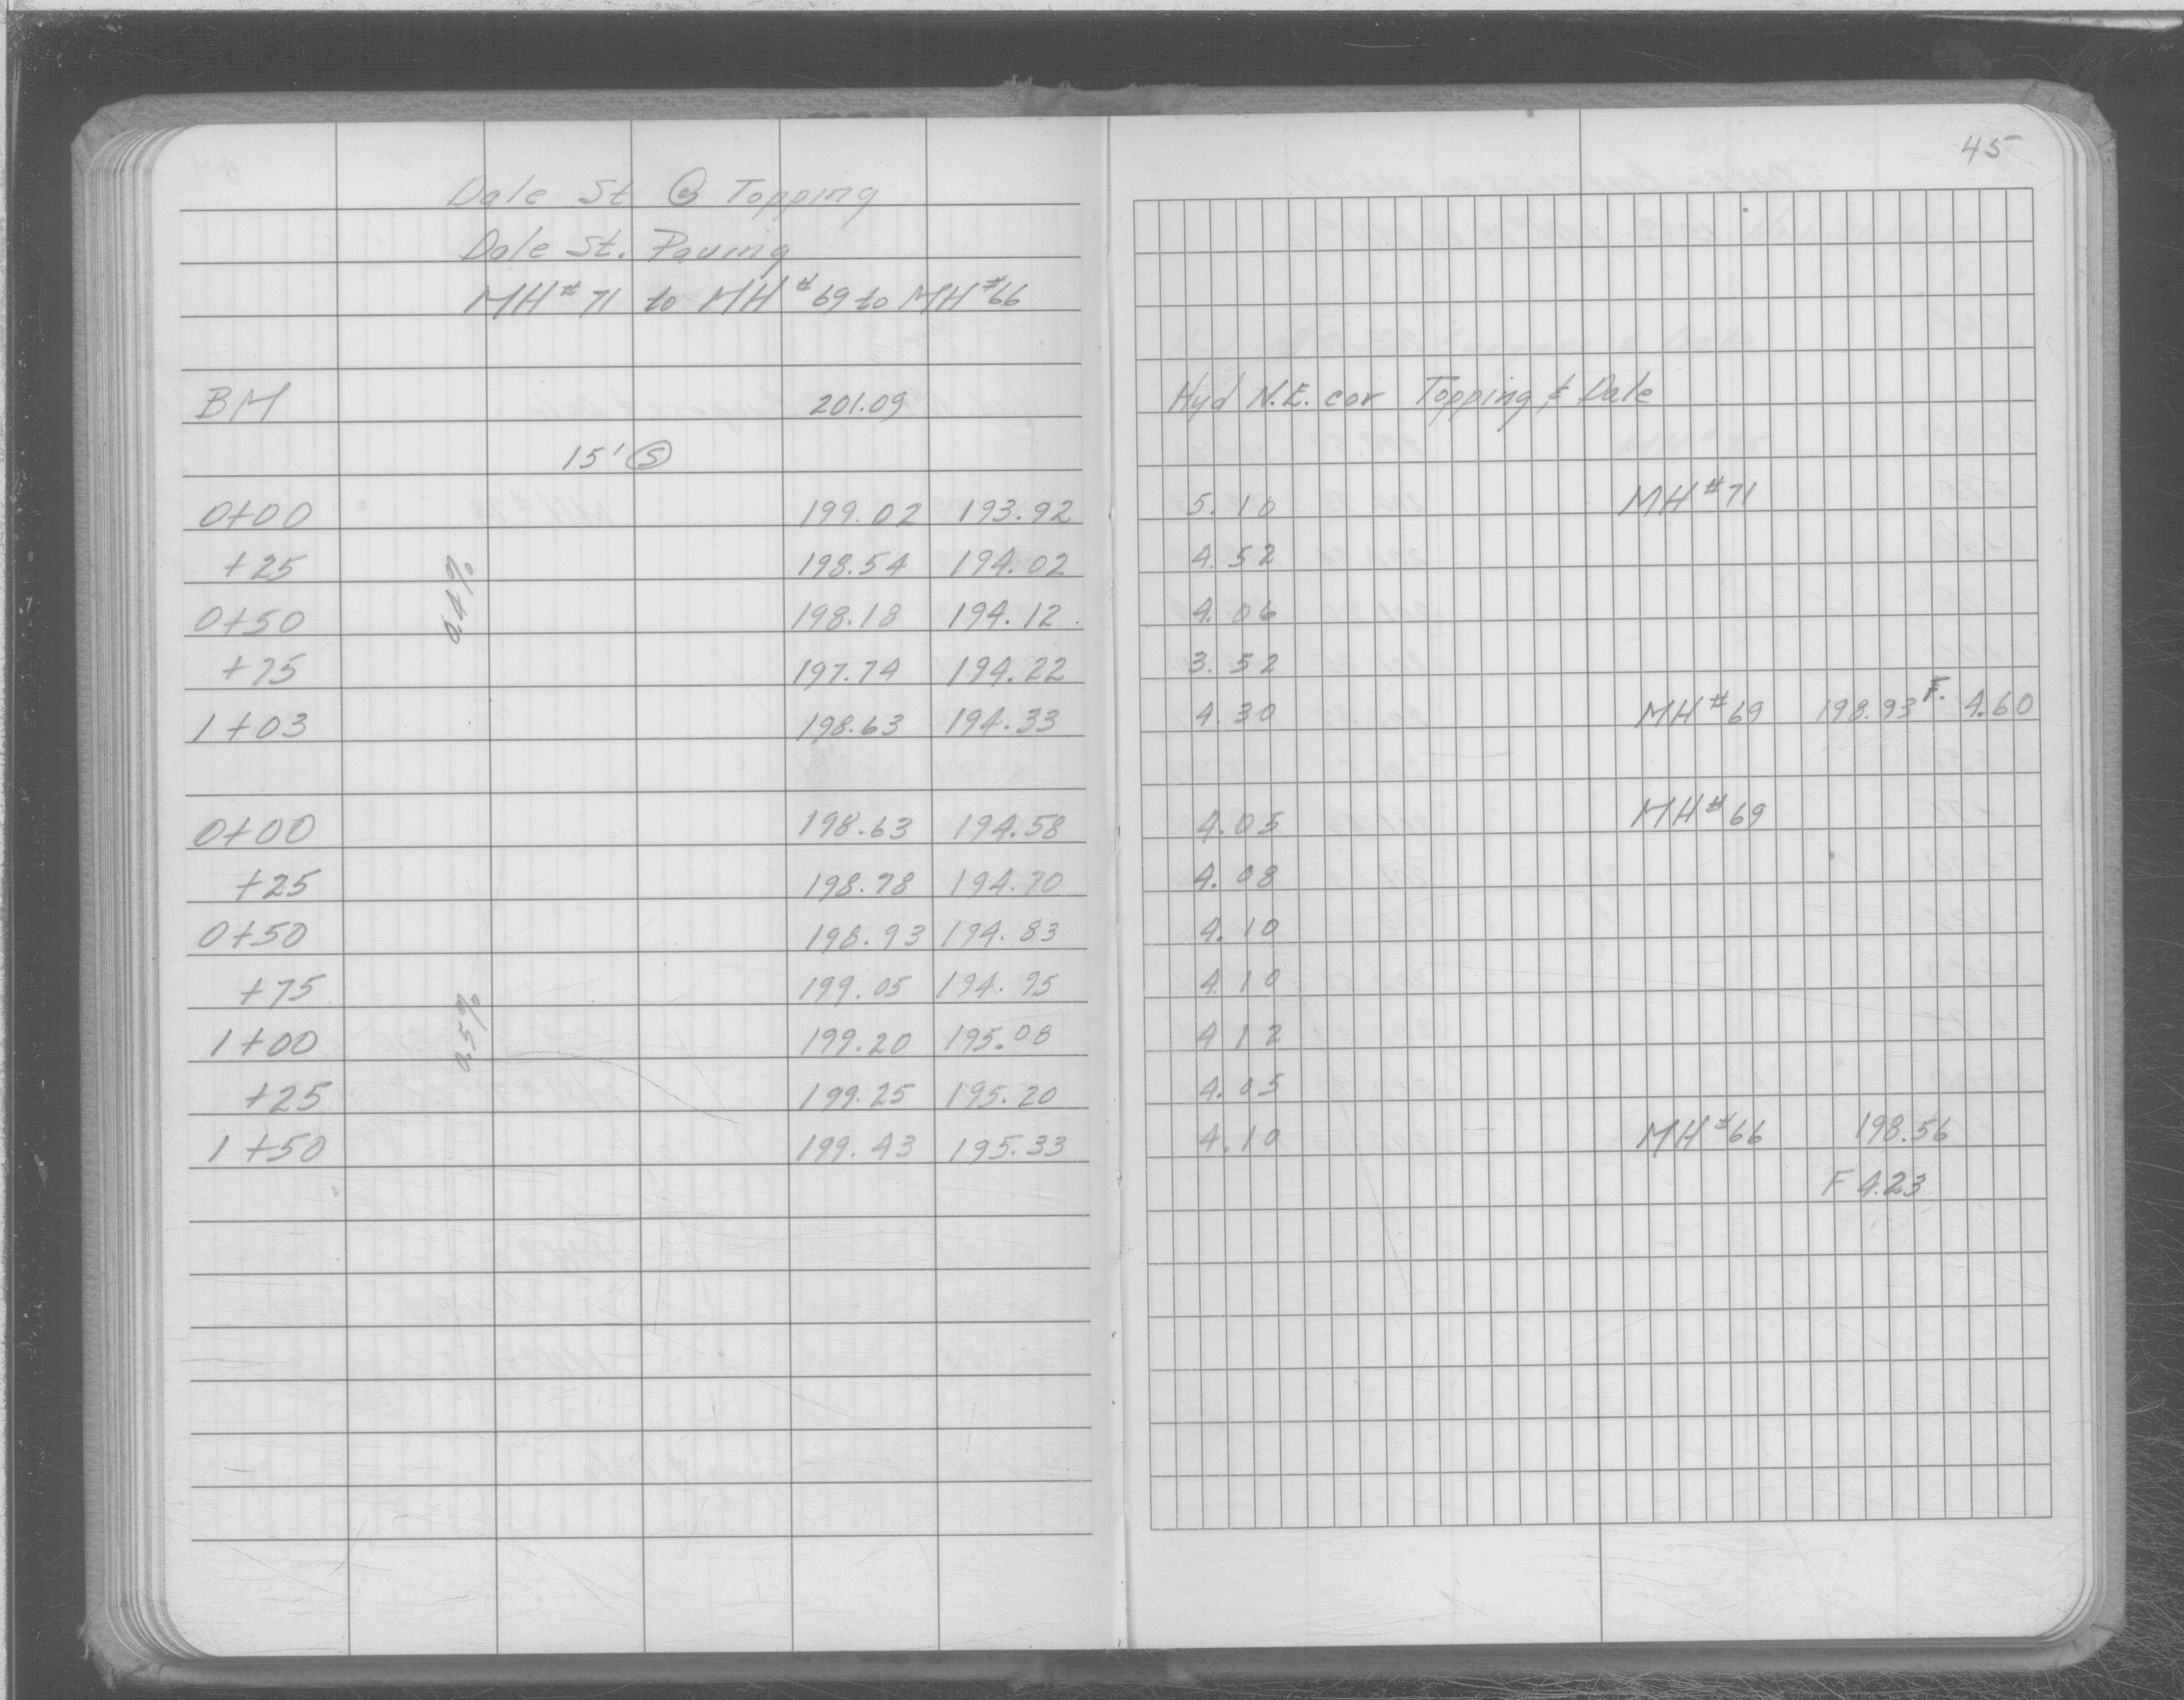 45
Dale St @ Topping
Dale St. Paving
MH#71 to MH#69 to MH#66
BM 201.09 Hyd N.E. cor Topping & Dale
15' S
0+00 199.02 193.92 5.10 MH#71
+25 198.54 194.02 4.52
0.4%
0+50 198.18 194.12 4.06
+75 197.74 194.22 3.52
1+03 198.63 194.33 4.30 MH#69 198.93 F. 4.60
0+00 198.63 194.58 4.05 MH#69
+25 198.78 194.70 4.08
0+50 198.93 194.83 4.10
+75 199.05 194.95 4.10
0.5%
1+00 199.20 195.08 4.12
+25 199.25 195.20 4.05
1+50 199.43 195.33 4.10 MH#66 198.56
F 4.23